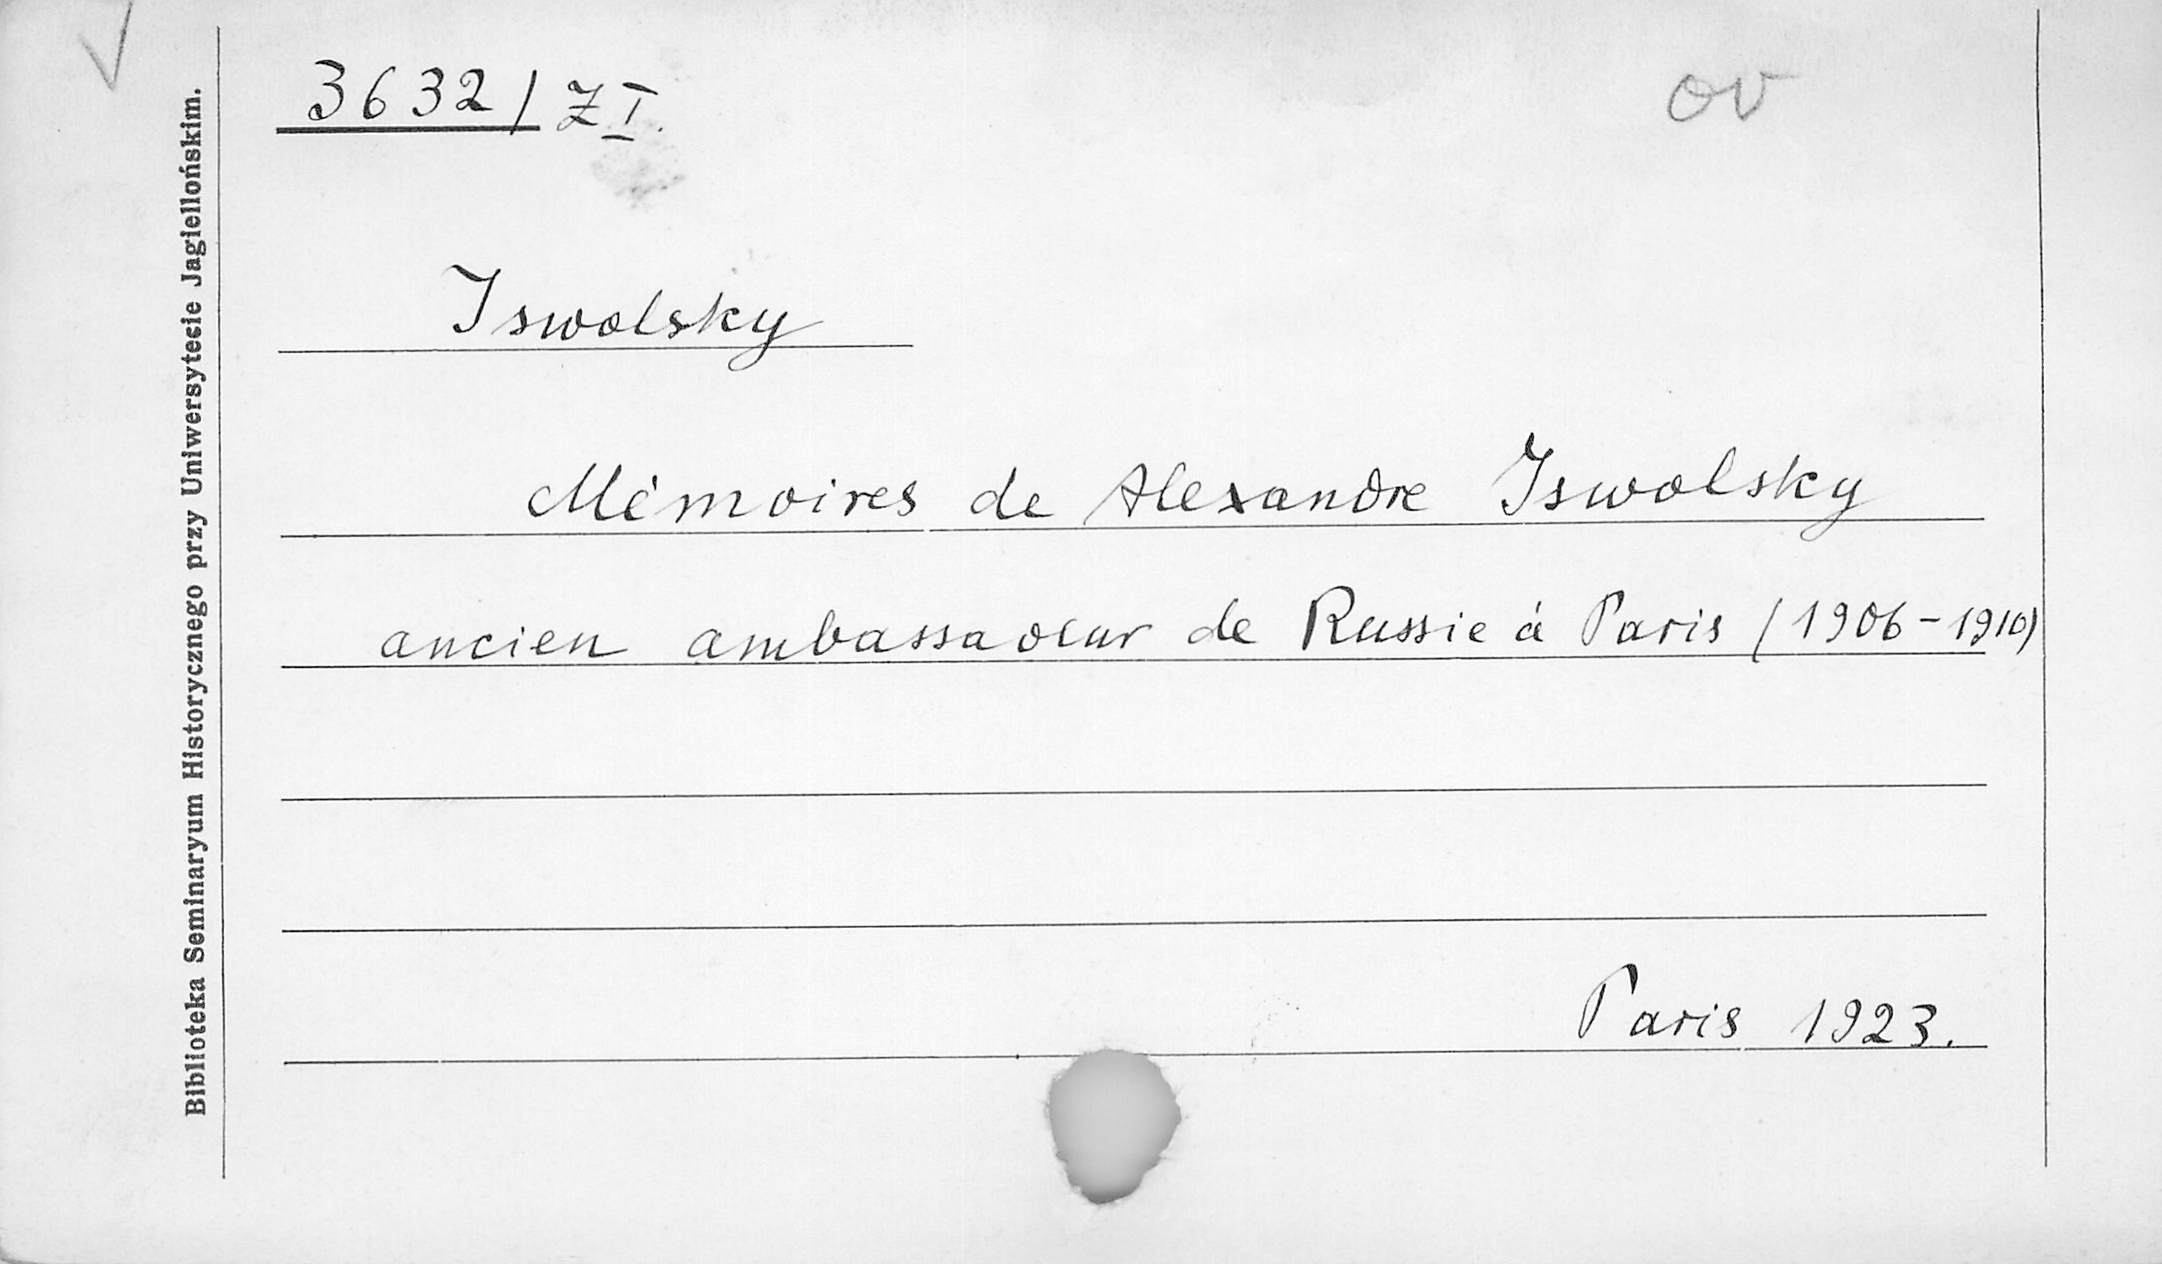 3632/ZI.
ov
Iswolsky
Mémoires de Alexandre Iswolsky
ancien ambassadeur de Russie á Paris (1906-1910)
Paris 1923.
Biblioteka Seminaryum Historycznego przy Uniwersytecie Jagiellońskim.